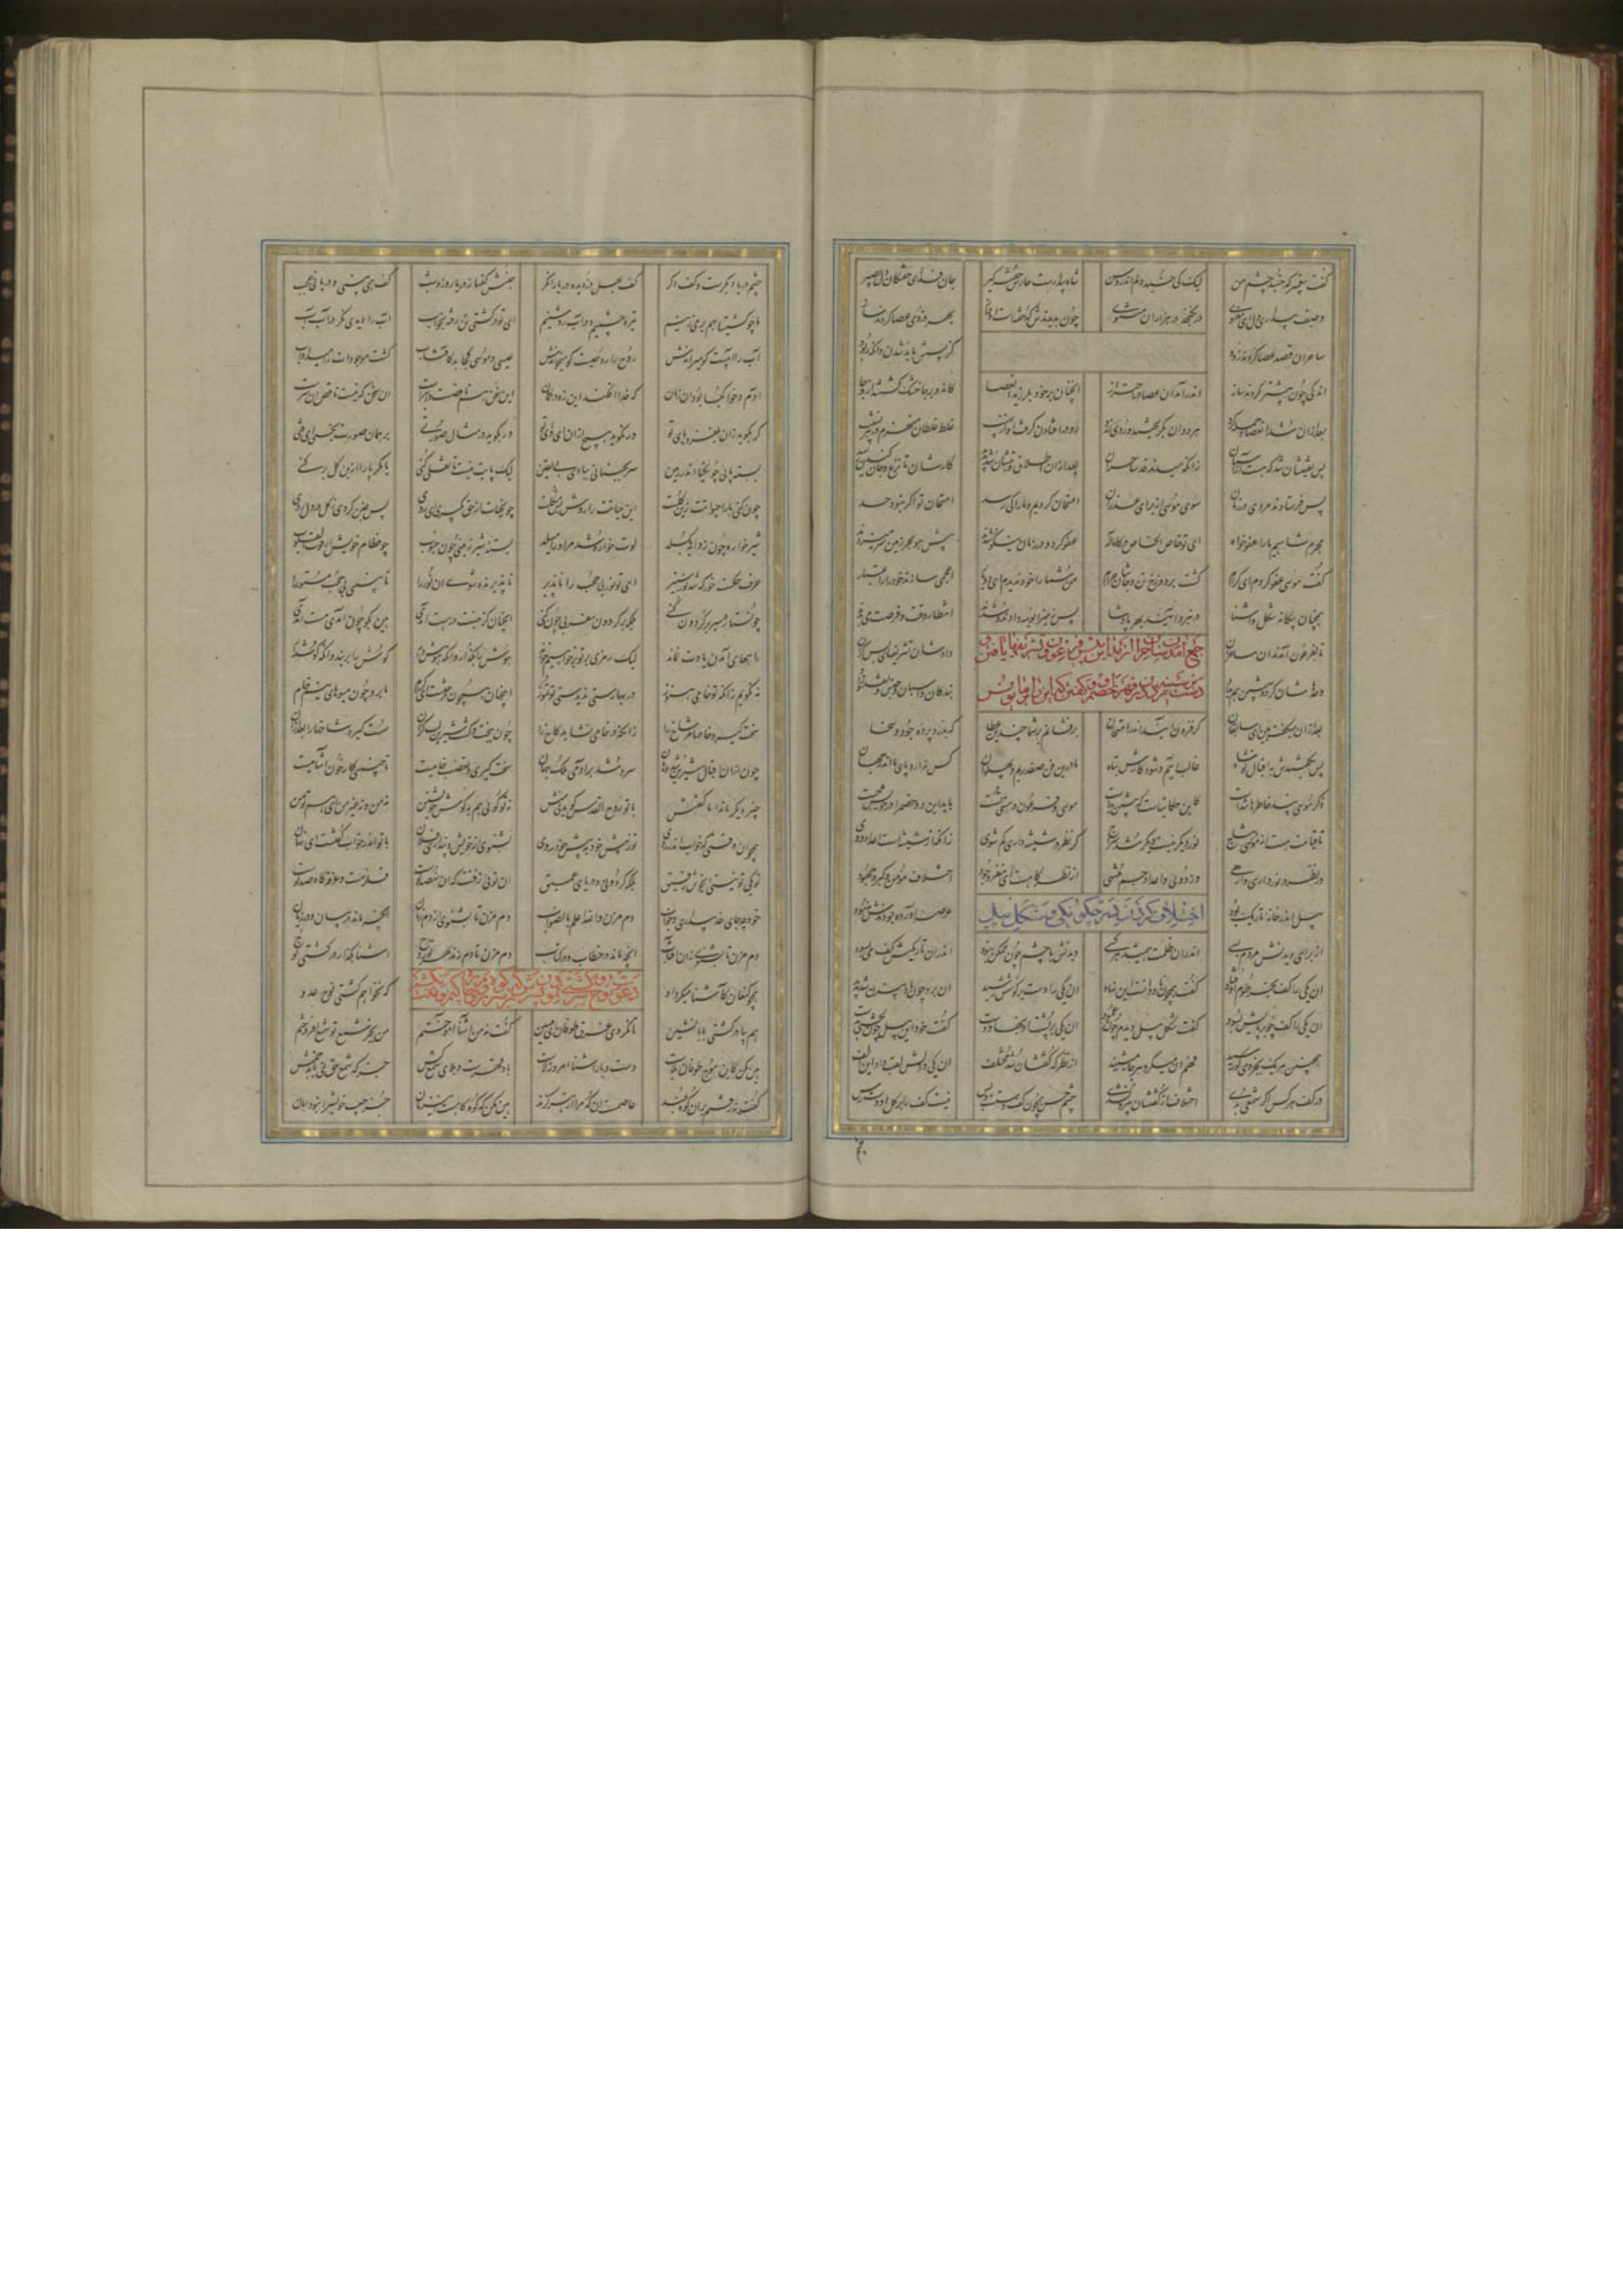 گفت پیغمبر که خسبد چشم من لیک کی خسبد دلم اندر وسن شاه بیدارست حارس خفته گیر جان فدای خفتگان دل بصیر
وصف بیداری دل ای معنوی درنگنجد در هزاران مثنوی چون بدیدندش که خفتست او دراز بهر دزدی عصا کردند ساز
ساحران قصد عصا کردند زود کز پسش باید شدن وانگه ربود
اندکی چون پیشتر کردند ساز اندر آمد آن عصا در اهتزاز آنچنان بر خود بلرزید آن عصا کان دو بر جا خشک گشتند از وجا
بعد از آن شد اژدها و حمله کرد هر دوان بگریختند و روی زرد رو در افتادن گرفتند از نهیب غلط غلطان منهزم در هر نشیب
پس یقینشان شد که هست از آسمان زانکه میدیدند حد ساحران بعد از آن اطلاق و تبشان شد پدید کارشان تا نزع و جان کندن رسید
پس فرستادند مردی در زمان سوی موسی از برای عذر آن امتحان کردیم و ما را کی رسد امتحان تو اگر نبود حسد
مجرم شاهیم ما را عفو خواه ای تو خاص الخاص درگاه اله عفو کرد و در زمان نیکو شدند پیش موسی بر زمین سر میزدند
گفت موسی عفو کردم ای کرام گشت بر دوزخ تن و جانتان حرام من شما را خود ندیدم ای دو یار اعجمی سازید خود را ز اعتذار
همچنان بیگانه شکل و آشنا در نبرد آیید بهر پادشا پس زمین را بوسه دادند و شدند انتظار وقت و فرصت می‌بدند
تا به فرعون آمدند آن ساحران دادشان تشریفهای بس گران
جمع آمدن ساحران از مداین پیش فرعون و تشریفها یافتن و
دست بر سینه زدن در قهر خصم و گفتن که این را بر ما نویس
وعدهاشان کرد و پیشین هم بداد بندگان و اسبان و نقد و جنس و زاد
بعد از آن میگفت هین ای سابقان گر فزون آیید اندر امتحان برفشانم بر شما چندین عطا که بدرد پرده جود و سخا
پس بگفتندش به اقبال تو شاه غالب آییم و شود کارش تباه ما درین فن صفدریم و پهلوان کس ندارد پای ما اندر جهان
ذکر موسی بند خاطرها شدست کاین حکایتهاست که پیشین بدست موسی و فرعون در هستی تست باید این دو خصم را در خویش جست
تا قیامت هست از موسی نتاج نور دیگر نیست دیگر شد سراج گر نظر در شیشه داری گم شوی زانکه از شیشه است اعداد دوی
ور نظر بر نور داری وارهی از دوی و اعداد جسم منتهی از نظرگاهست ای مغز وجود اختلاف مؤمن و گبر و جهود
اختلاف کردن در چگونگی و شکل پیل
پیل اندر خانه تاریک بود عرضه را آورده بودندش هنود
از برای دیدنش مردم بسی اندر آن ظلمت همی شد هر کسی دیدنش با چشم چون ممکن نبود اندر آن تاریکیش کف می‌بسود
آن یکی را کف به خرطوم اوفتاد گفت همچون ناودانست این نهاد آن یکی را دست بر گوشش رسید آن برو چون بادبیزن شد پدید
آن یکی را کف چو بر پایش بسود گفت شکل پیل دیدم چون عمود آن یکی بر پشت او بنهاد دست گفت خود این پیل چون تختی بدست
همچنین هر یک به جزوی که رسید فهم آن میکرد هر جا میشنید از نظرگه گفتشان شد مختلف آن یکی دالش لقب داد این الف
در کف هر کس اگر شمعی بدی اختلاف از گفتشان بیرون شدی چشم حس همچون کف دستست و بس نیست کف را بر کل او دسترس
چشم دریا دیگرست و کف دگر کف بهل وز دیده دریا نگر جنبش کفها ز دریا روز و شب کف همی بینی و دریا نی عجب
ما چو کشتیها بهم بر میزنیم تیره چشمیم و در آب روشنیم ای تو در کشتی تن رفته بخواب آب را دیدی نگر در آب آب
آب را آبیست کو میراندش روح را روحیست کو میخواندش عیسی و موسی کجا بد کآفتاب کشت موجودات را میداد آب
آدم و حوا کجا بود آن زمان که خدا افکند این زه در کمان این سخن هم ناقصست و ابترست آن سخن که نیست ناقص آن سرست
گر بگوید زان بلغزد پای تو ور نگوید هیچ از آن ای وای تو ور بگوید در مثال صورتی بر همان صورت بچفسی ای فتی
بسته پایی چون گیا اندر زمین سر بجنبانی ببادی بی یقین لیک پایت نیست تا نقلی کنی یا مگر پا را ازین گل بر کنی
چون کنی پا را حیاتت زین گلست این حیاتت را روش بس مشکلست چون حیات از حق بگیری ای روی پس غنی گردی ز گل در دل روی
شیرخواره چون ز دایه بگسلد لوت خواره شد مر او را میهلد بسته شیر زمینی چون حبوب جو فطام خویش از قوت القلوب
حرف حکمت خور که شد نور ستیر ای تو نور بی حجب را ناپذیر تا پذیرا گردی ای جان نور را تا ببینی بی حجب مستور را
چون ستاره سیر بر گردون کنی بلکه بی گردون سفر بی چون کنی آنچنان کز نیست در هست آمدی هین بگو چون آمدی مست آمدی
راههای آمدن یادت نماند لیک رمزی بر تو بر خواهیم خواند هوش را بگذار وانگه هوش دار گوش را بر بند وانگه گوش دار
نه نگویم زانکه تو خامی هنوز در بهاری تو ندیدستی تموز این جهان همچون درختست ای کرام ما برو چون میوهای نیم خام
سخت گیرد خامها مر شاخ را زانکه در خامی نشاید کاخ را چون بپخت و گشت شیرین لب گزان سست گیرد شاخها را بعد از آن
چون از آن اقبال شیرین شد دهان سرد شد بر آدمی ملک جهان سخت‌گیری و تعصب خامیست تا جنینی کار خون آشامیست
چیز دیگر ماند اما گفتنش با تو روح القدس گوید بی منش نه تو گویی هم بگوش خویشتن نه من و نه غیر من ای هم تو من
همچو آن وقتی که خواب اندر روی تو ز پیش خود به پیش خود روی بشنوی از خویش و پنداری فلان با تو اندر خواب گفتست آن نهان
تو یکی تو نیستی ای خوش رفیق بلکه گردونی و دریای عمیق آن توی زفتت که آن نهصد توست قلزمست و غرقه گاه صد توست
خود چه جای حد بیداریست و خواب دم مزن والله اعلم بالصواب دم مزن تا بشنوی از دم زنان آنچه نامد در بیان و در زبان
دم مزن تا بشنوی زان آفتاب آنچه نامد در خطاب و در کتاب دم مزن تا دم زند بهر تو روح آشنا بگذار در کشتی نوح
همچو کنعان کآشنا میکرد او که نخواهم کشتی نوح عدو
هم بیا در کشتی بابا نشین تا نگردی غرق طوفان ای مهین گفت نه من آشنا آموختم من بجز شمع تو شمع افروختم
هین مکن کاین موج طوفان بلاست دست و پا و آشنا امروز لاست باد قهرست و بلای شمع کش جز که شمع حق نمی‌پاید خمش
گفت نه رفتم بر آن کوه بلند عاصمست آن که مرا از هر گزند هین مکن که کوه کاهست این زمان جز حبیب خویش را ندهد امان